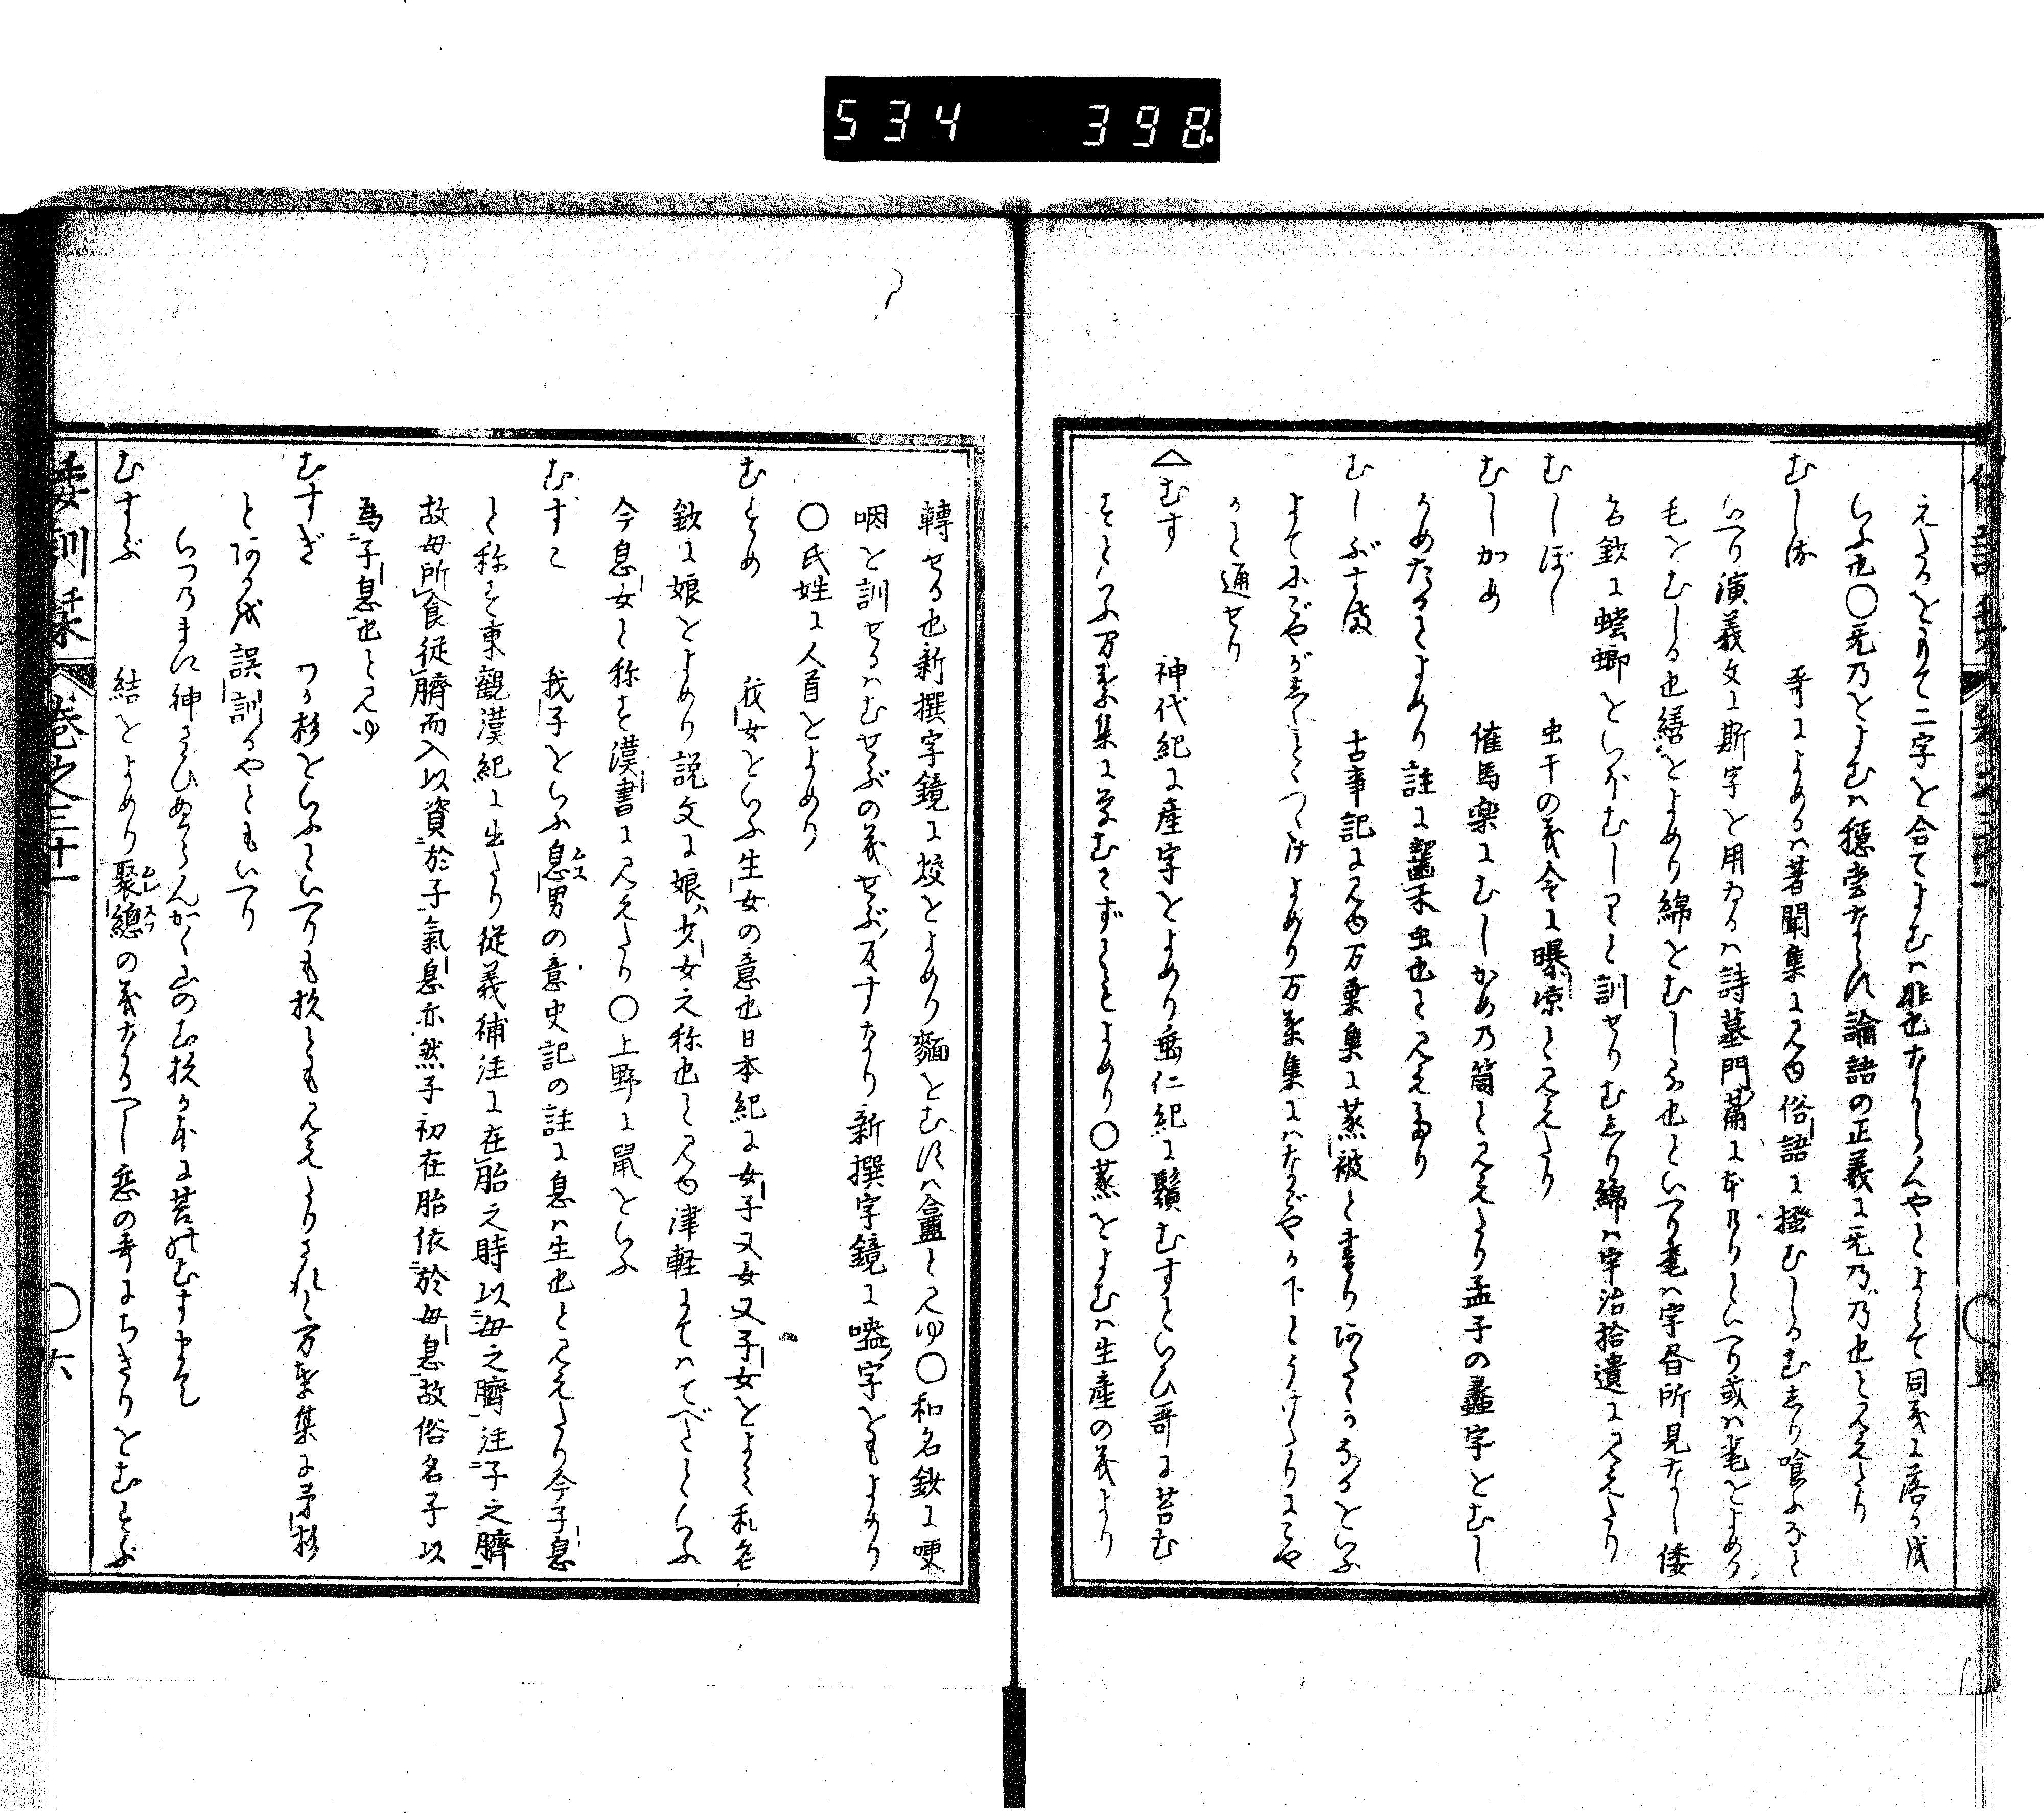 534 398
えたるをもて二字を合てよむハ非也なりしんやとよみて同義に落る成
いふ也〇无乃とよむハ穏當ならす論語の正義に无乃乃也と見えたり
むしる 哥によめるハ著聞集に見ゆ俗語に掻むしるむしり喰ふなと
いへり演義文に斯字を用ゐるハ詩墓門篇に本つけりといへり或ハ毟をよめる
毛をむしる也繕をよめり綿をむしる也といへり毟ハ字書所見なし倭
名鈔に蟷螂をいほむしりと訓せりむしり綿ハ宇治拾遺に見えたり
むしぼし 虫干の義令に曝凉と見えたり
むしかめ 催馬楽にむしかめの筒と見えたり孟子の蠡字をむし
かめたるとよめり註に齧禾虫也と見えたり
むしぶすま 古事記に見ゆ万葉集に蒸被と書りあたゝかなるをいふ
よてにごやがしたとつゝけよめり万葉集にハなごやか下とうけたりにこや
かと通せり
△むす 神代紀に産字をよめり垂仁紀に鬚むすといひ哥に苔む
すといふ万葉集に草むさずともよめり〇蒸をよむハ生産の義より
轉せる也新撰字鏡に烄をよめり麵をむすハ盦と見ゆ〇和名鈔に哽
咽を訓せるハむせぶの義せぶ反すなり新撰字鏡に嗑字をもよめり
〇氏姓に人首をよめり
むすめ 我女をいふ生女の意也日本紀に女子又女又子女をよみ和名
鈔に娘をよめり説文に娘ハ少女之称也と見ゆ津軽にてハてべことといふ
今息女と称す漢書に見えたり〇上野に鼠をいふ
むすこ 我子をいふ息男の意史記の註に息ハ生也と見えたり今子息
と称す東観漢紀に出たり従義補注に在胎之時以母之臍注子之臍
故母所食従臍而入以資於子氣息亦然子初在胎依於母息故俗名子以
為子息也と見ゆ
むすぎ つる杉をいふといへりも杉とも見えたりされと万葉集に矛杉
とあるを誤訓るやともいへり
いつのまに神さひめらんかく山のむ杉か本に苔のむすまて
むすぶ 結をよめり聚總の義なるへし恋の哥にちきりをむすぶ
倭訓栞 巻之三十一 〇六